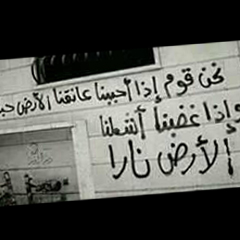 نحن قوم إذا أحببنا عانقنا الأرض حبا
وإذا غضبنا أشعلنا
الأرض نارا